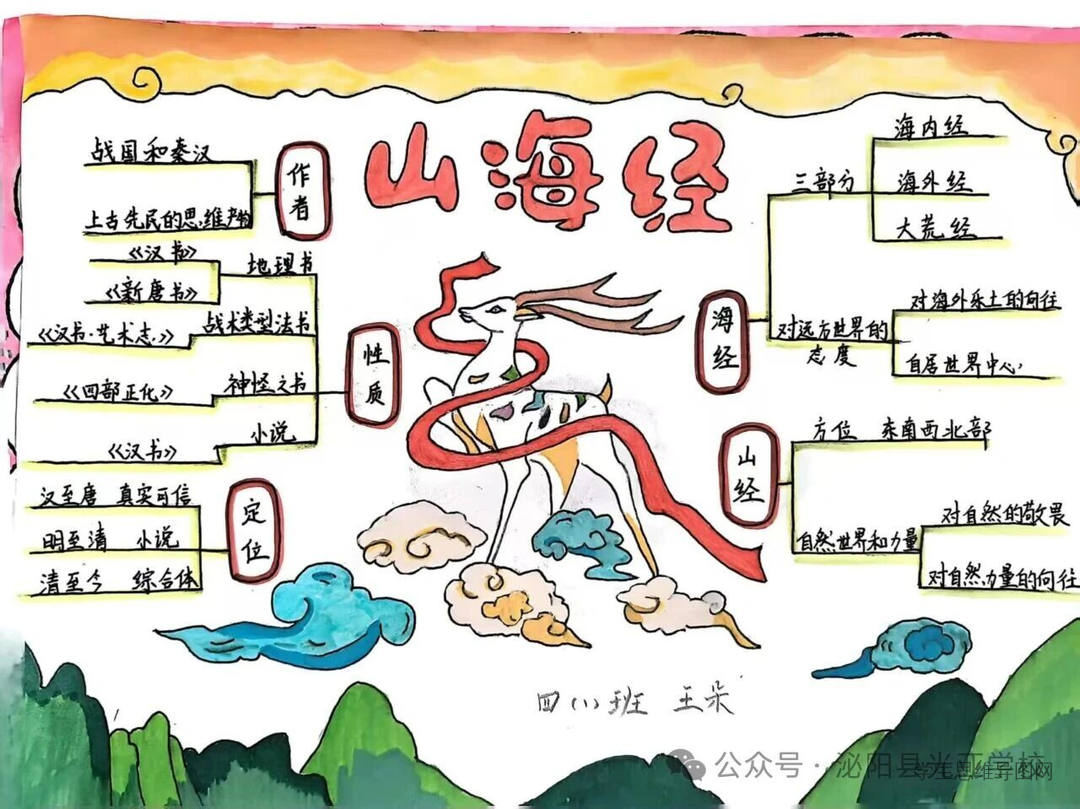 山海经
作者
战国和秦汉
上古先民的思维产物
性质
地理书
《汉书》
《新唐书》
战术类型法书
《汉书·艺术志》
神怪之书
《四部正化》
小说
《汉书》
定位
汉至唐 真实可信
明至清 小说
清至今 综合体
海经
三部分
海内经
海外经
大荒经
对远方世界的
态度
对海外乐土的向往
自居世界中心
山经
方位 东南西北部
自然世界和力量
对自然的敬畏
对自然力量的向往
四(1)班 王朵
公众号·泌阳县光亚学校
学生思维导图网